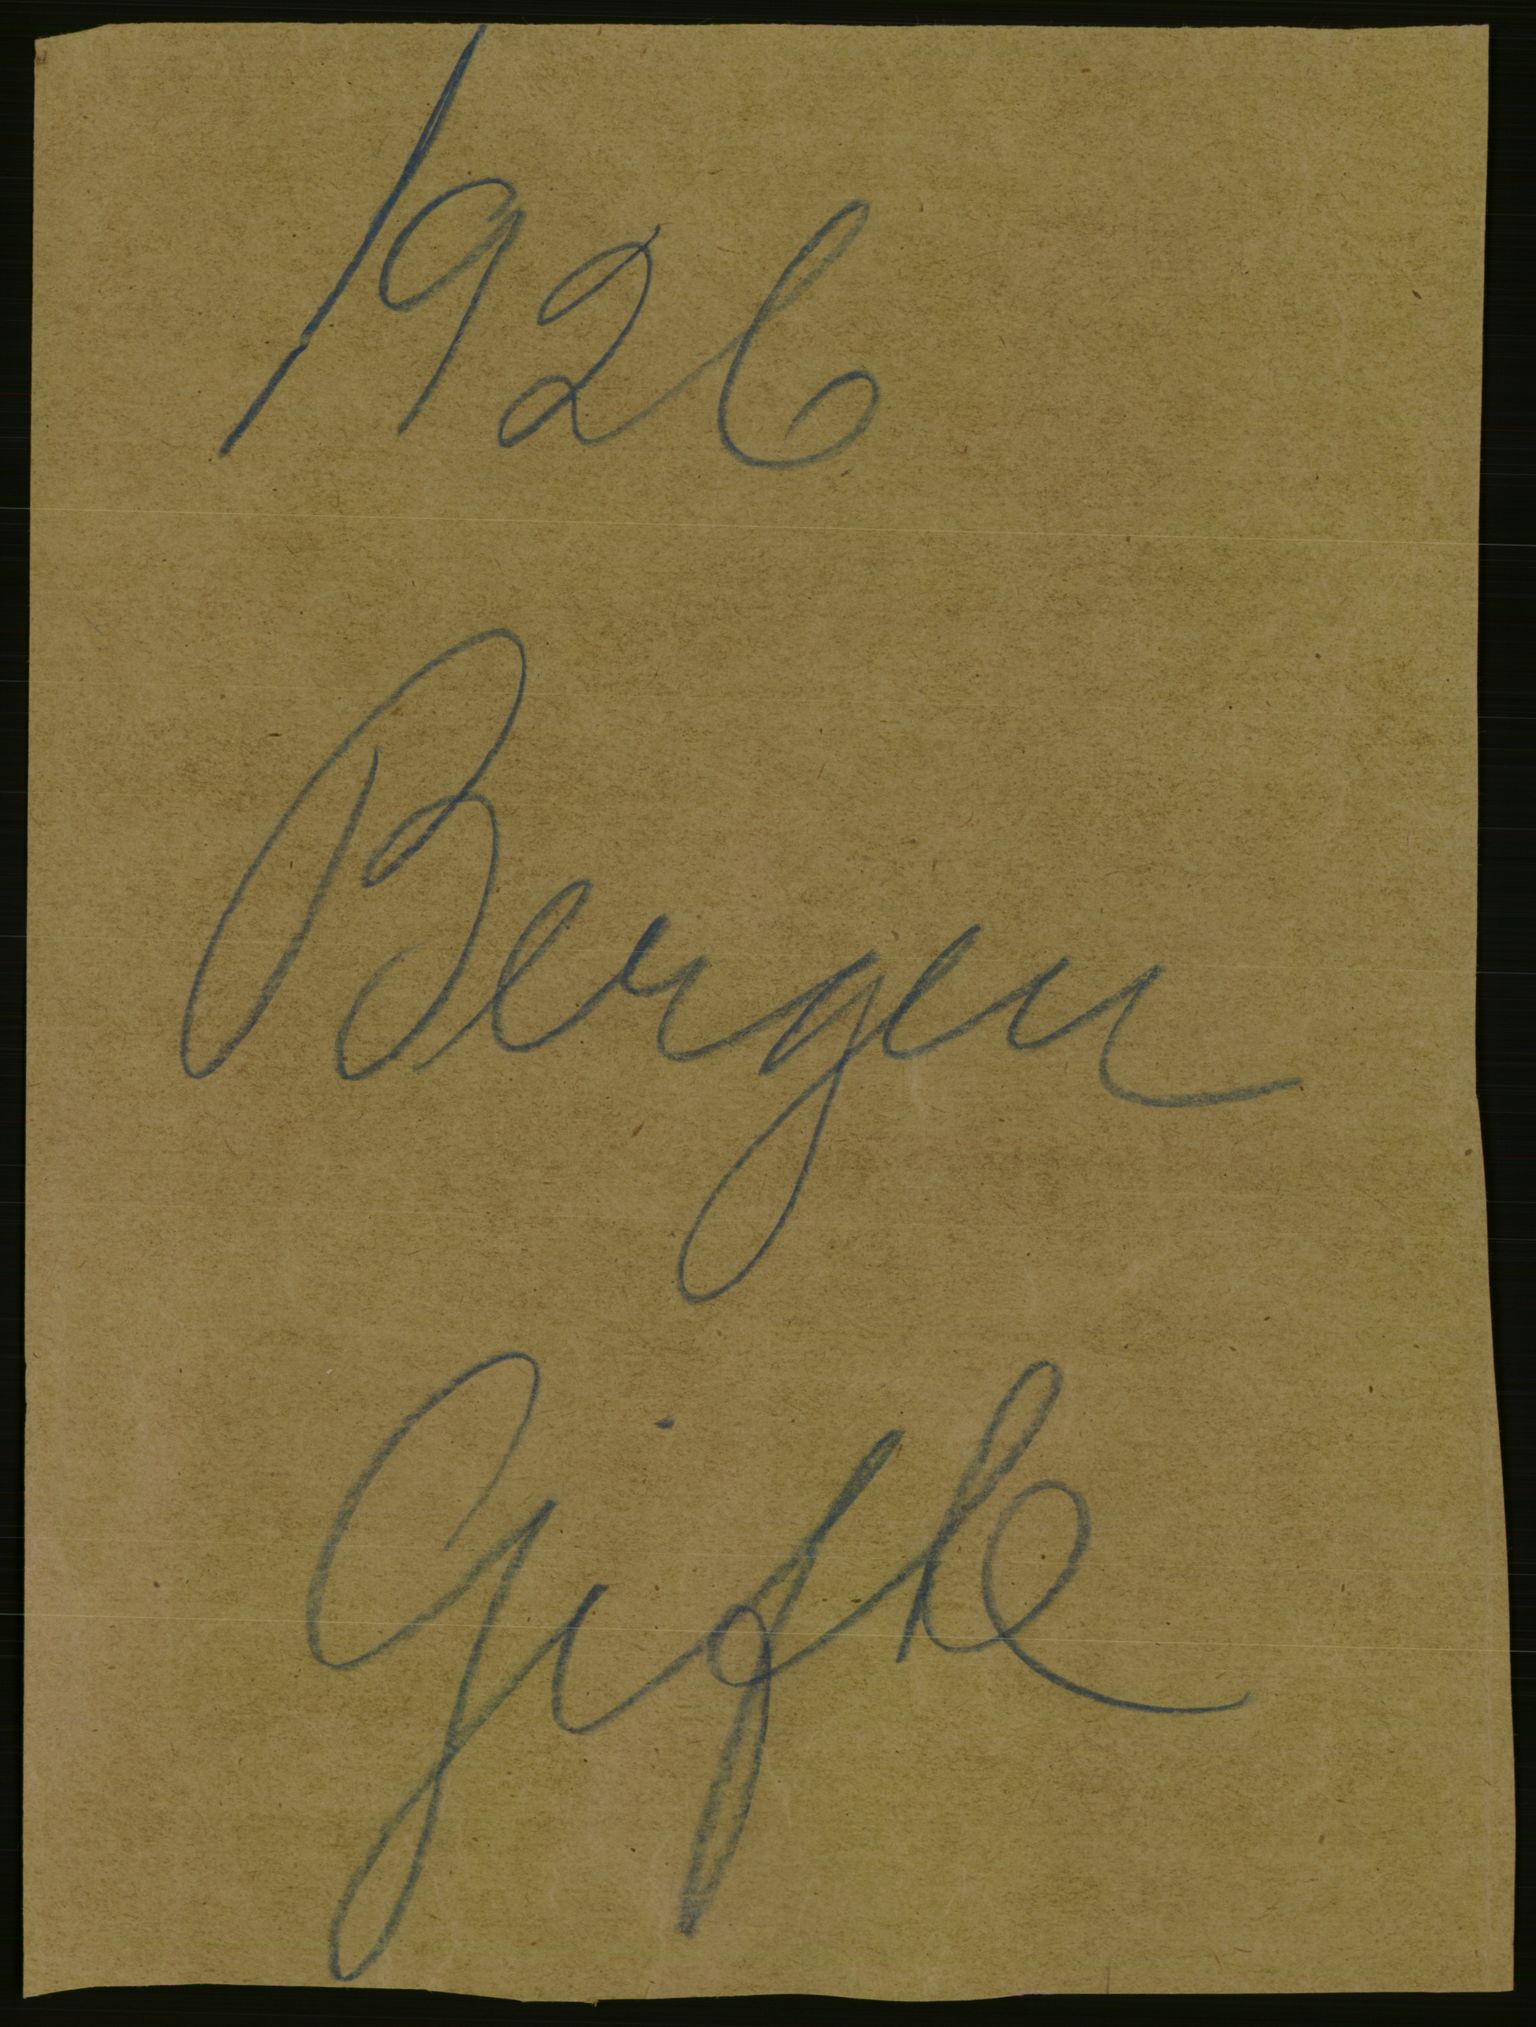 1926
Bergen
Gifte